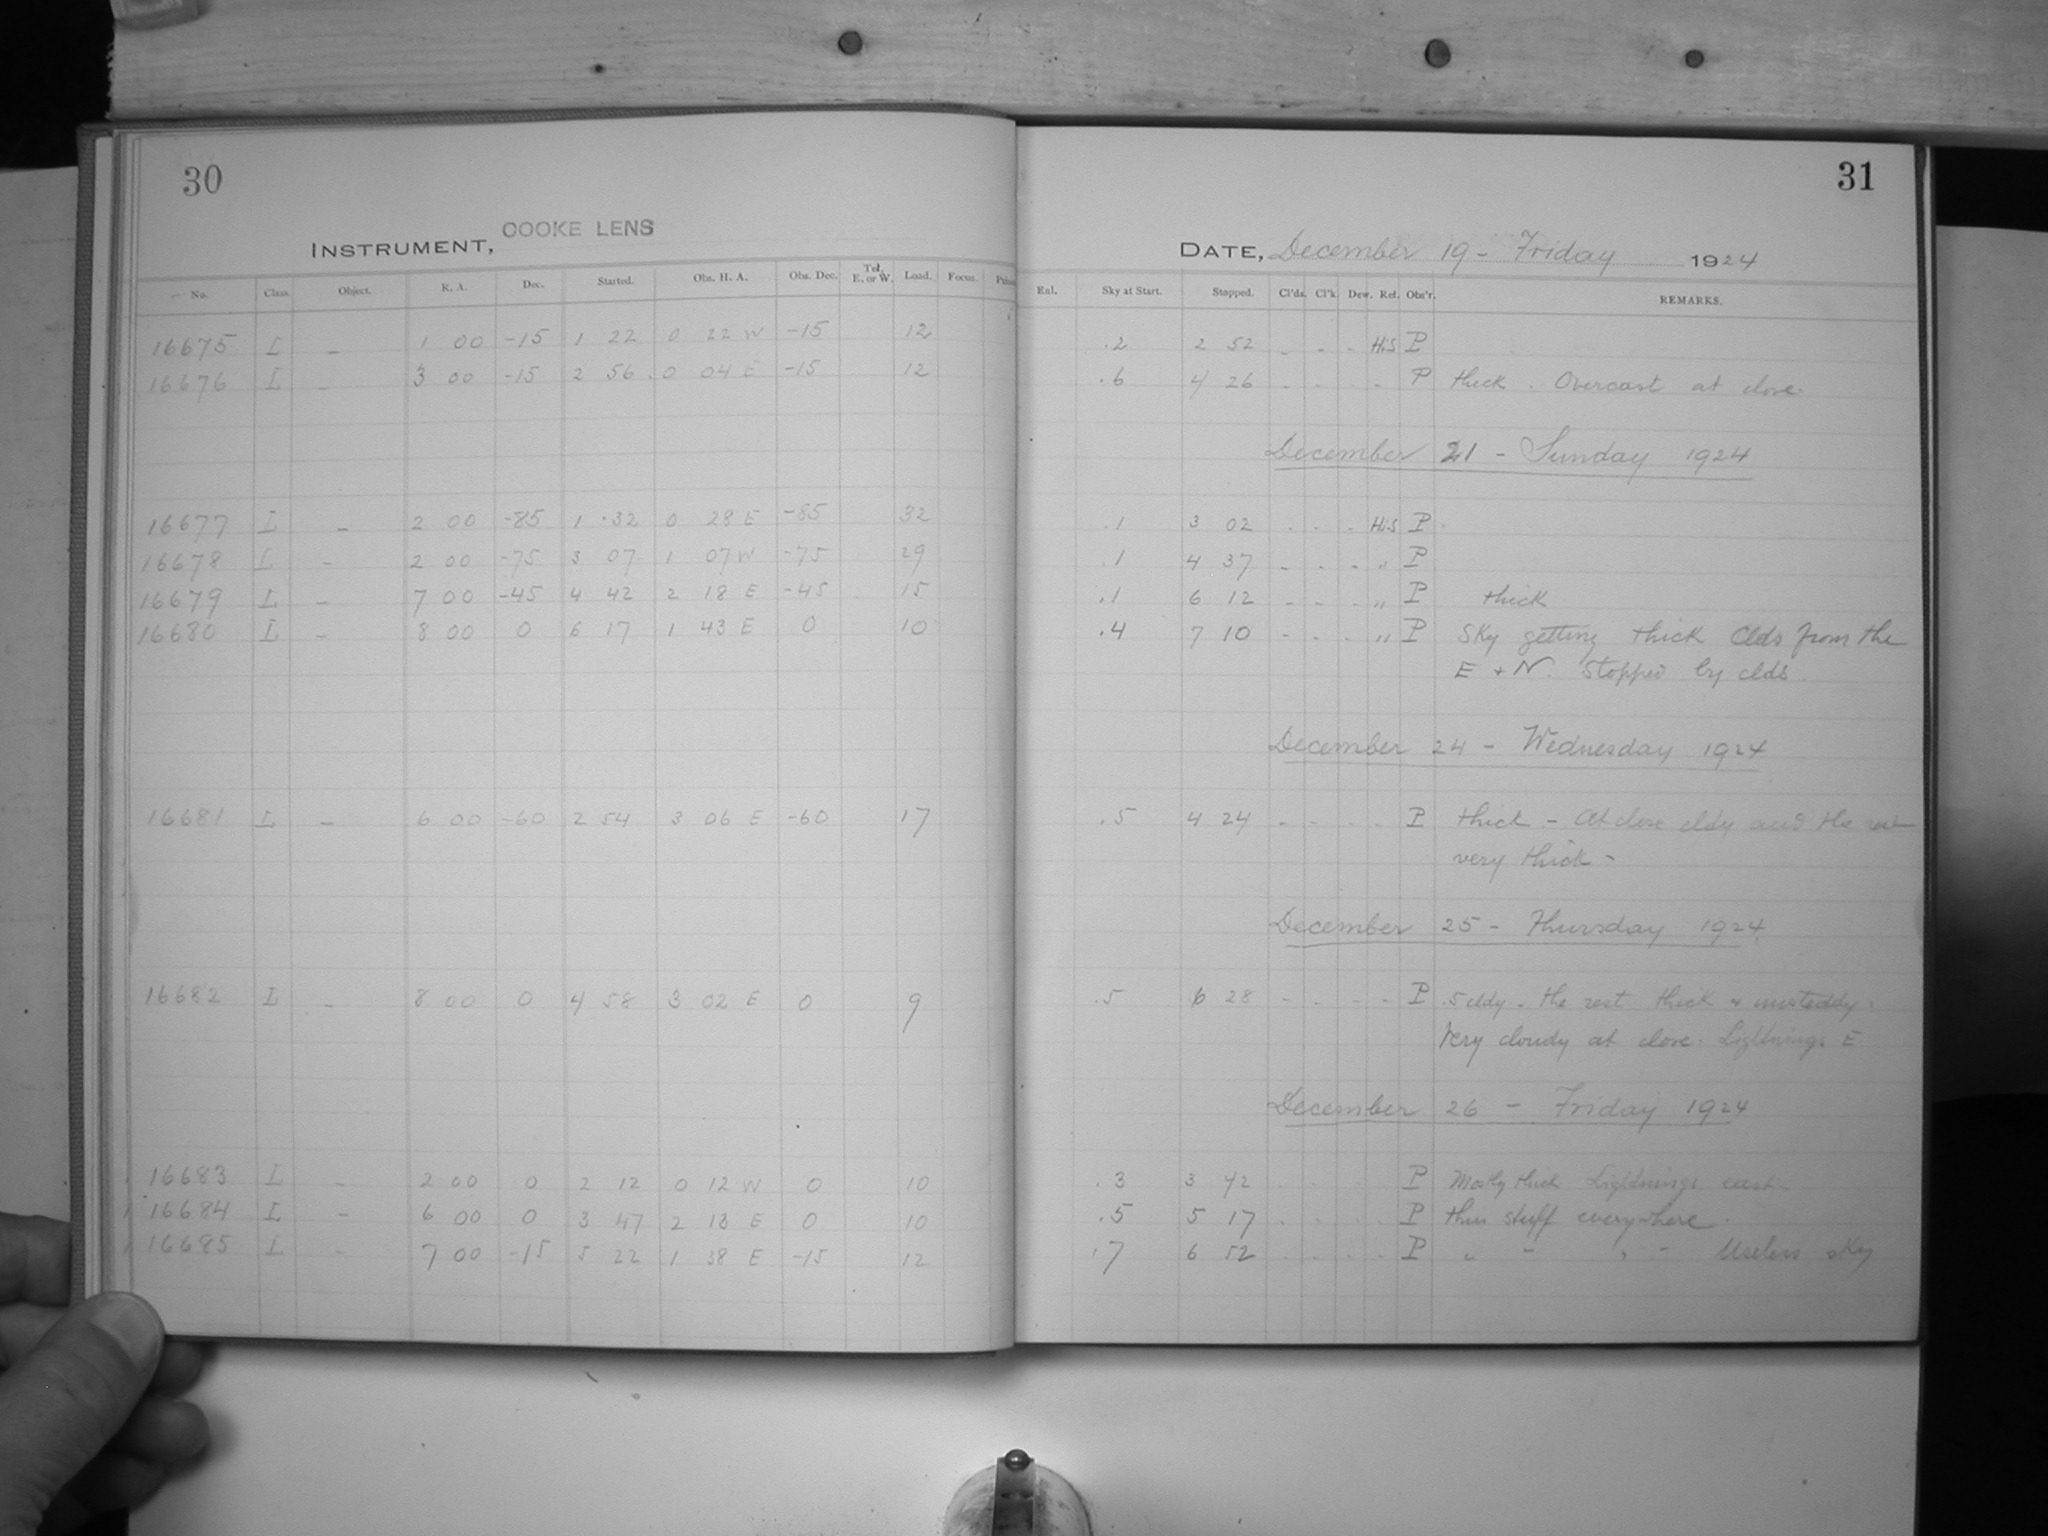 30
INSTRUMENT, COOKE LENS
No. Class. Object. R. A. Dec. Started. Obs. H. A. Obs. Dec. Tel. E. or W. Load. Focus.
16675 L – 1 00 -15 1 22 0 22 W -15 12
16676 L – 3 00 -15 2 56 0 04 E -15 12
16677 L – 2 00 -85 1 32 0 28 E -85 32
16678 L – 2 00 -75 3 07 1 07 W -75 29
16679 L – 7 00 -45 4 42 2 18 E -45 15
16680 L – 8 00 0 6 17 1 43 E 0 10
16681 L – 6 00 -60 2 54 3 06 E -60 17
16682 L – 8 00 0 4 58 3 02 E 0 9
16683 L – 2 00 0 2 12 0 12 W 0 10
16684 L – 6 00 0 3 47 2 13 E 0 10
16685 L – 7 00 -15 5 22 1 38 E -15 12
31
DATE, December 19 - Friday 1924
Sky at Start. Stopped. Cl'ds. Cl'k. Dew. Ref. Obs'r. REMARKS.
.2 2 52 - - - His P
.6 4 26 - - - - P thick. Overcast at close.
December 21 - Sunday 1924
.1 3 02 - - - His P
.1 4 37 - - - " P
.1 6 12 - - - " P thick
.4 7 10 - - - " P Sky getting thick Clds from the
E + N. Stopped by clds.
December 24 - Wednesday 1924
.5 4 24 - - - - P thick - At close cldy and the rest
very thick -
December 25 - Thursday 1924
.5 6 28 - - - - P .5 cldy - the rest thick + unsteddy.
Very cloudy at close. Lightnings E
December 26 - Friday 1924
.3 3 42 - - - - P Mostly thick Lightnings east
.5 5 17 - - - - P thin stuff everywhere.
.7 6 52 - - - - P " " " - Useless sky